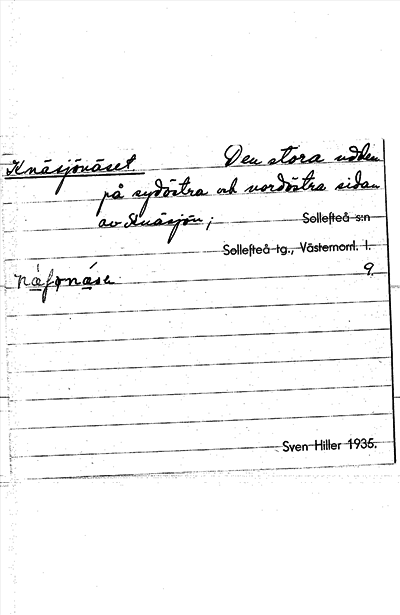 Knäsjönäset Den stora udden
på sydöstra och nordöstra sidan
av Knäsjön; Sollefteå s:n
Sollefteå tg., Västernorrl. l.
9.
Sven Hiller 1935.